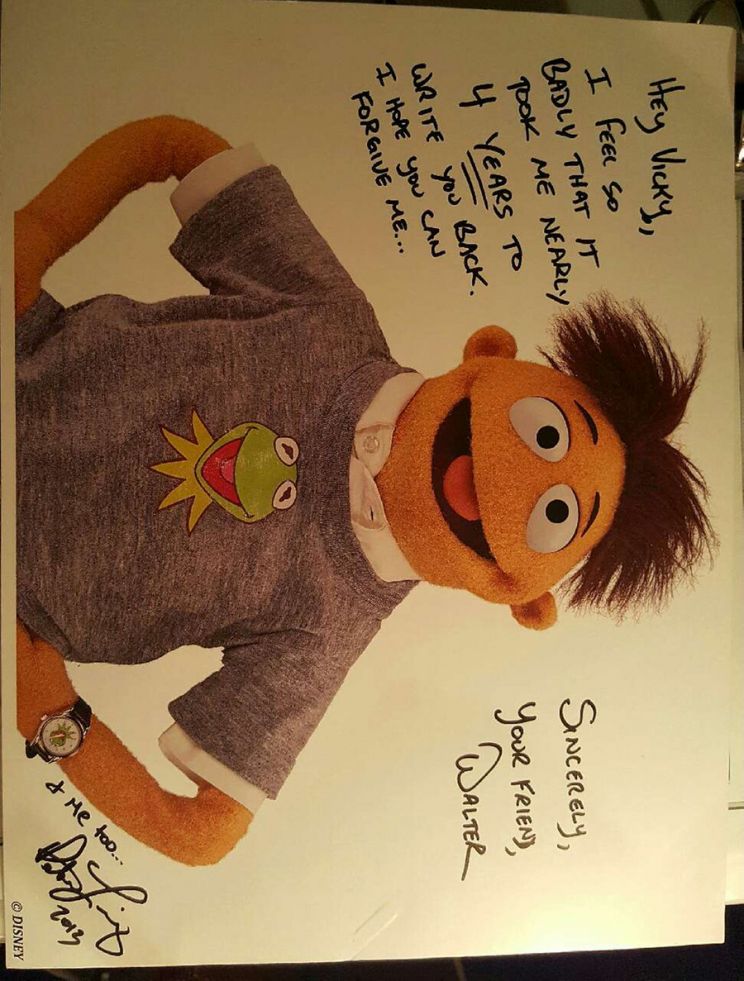 Hey Vicky,,
I FEEL SO
BADLY THAT IT
TOOK ME NEARLY
4 YEARS TO
WRITE YOU BACK.
I HOPE YOU CAN
FORGIVE ME...
SINCERELY,
YOUR FRIEND,
WALTER
& ME TOO...
© DISNEY